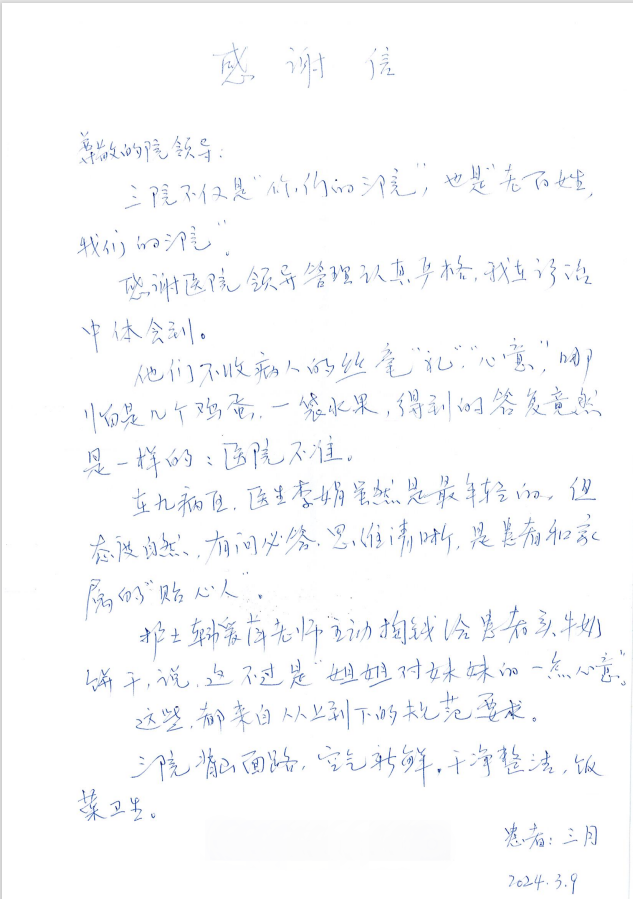 感 谢 信
尊敬的院领导:
三院不仅是“你们的三院”,也是“老百姓,
我们的三院”。
感谢医院领导管理认真严格,我在诊治
中体会到。
他们不收病人的丝毫“礼”、“心意”,哪
怕是几个鸡蛋,一袋水果,得到的答复竟然
是一样的:医院不准。
在九病区,医生李娟虽然是最年轻的,但
态度自然,有问必答,思维清晰,是患者和家
属的“贴心人”。
护士韩爱萍老师主动掏钱给患者买牛奶
饼干,说,这不过是“姐姐对妹妹的一点心意”。
这些,都来自从上到下的规范要求。
三院背山面路,空气新鲜,干净整洁,饭
菜卫生。
患者:三月
2024.3.9